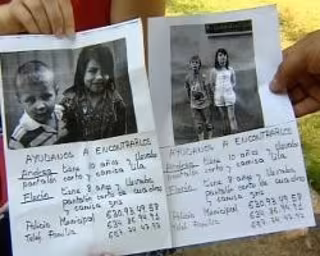 AYUDANOS A ENCONTRARLOS
Andrea tiene 10 años y llevaba
pantalón corto y camisa lila
Florin tiene 8 años y llevaba
pantalón corto de cuadros
y camisa gris
Policia Municipal 630.93.49.58
Telef. Familia
AYUDANOS A ENCONTRARLOS
Andrea tiene 10 años y llevaba
pantalón corto y camisa lila
Florin tiene 8 años y llevaba
pantalón corto de cuadros
y camisa gris
Policia Municipal 630.93.49.58
Telef. Familia